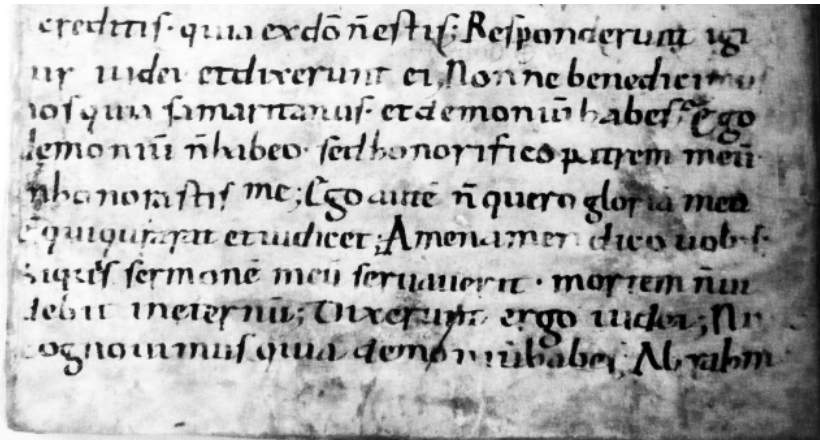 creditis · quia exdō ñestis; Responderunt igi
tur iudei etdixerunt ei, Nonne benedicimus
nos quia samaritanus · etdemoniū habes? Ego
demoniū ñhabeo · sedhonorifico patrem meū
ñhonorastis me; Ego autē ñ quero gloriā meā
ē quiquerat etiudicet; Amenamen dico uobis ·
siquis sermonē meū seruauerit · mortem ñui
debit ineternū; Dixerunt ergo iudei; Nu
cognouimus quia demoniūhabes; Abraham